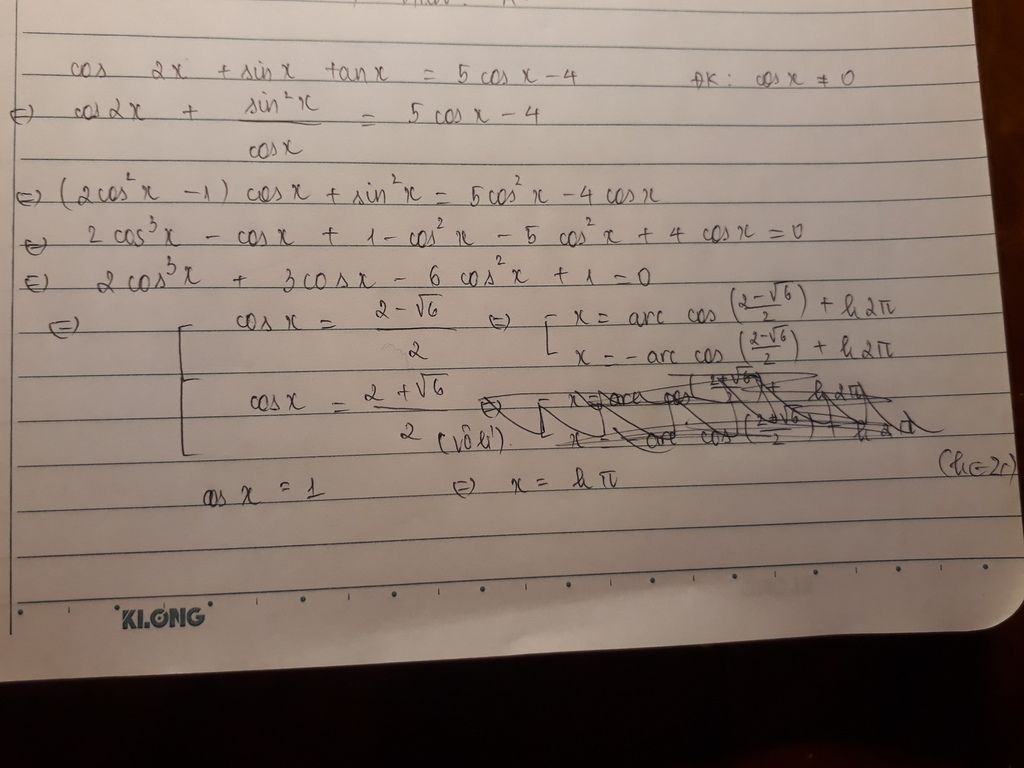 cos 2x + sin x tan x = 5 cos x - 4 ĐK: cos x ≠ 0
⇔ cos 2x + sin²x / cos x = 5 cos x - 4
⇔ (2cos²x - 1) cos x + sin²x = 5 cos²x - 4 cos x
⇔ 2 cos³x - cos x + 1 - cos²x - 5 cos²x + 4 cos x = 0
⇔ 2 cos³x + 3 cos x - 6 cos²x + 1 = 0
⇔ [ cos x = (2 - √6)/2 ⇔ [ x = arc cos ((2-√6)/2) + k2π
x = - arc cos ((2-√6)/2) + k2π
cos x = (2 + √6)/2 (vô lí)
cos x = 1 ⇔ x = kπ (k ∈ Z)
KLONG